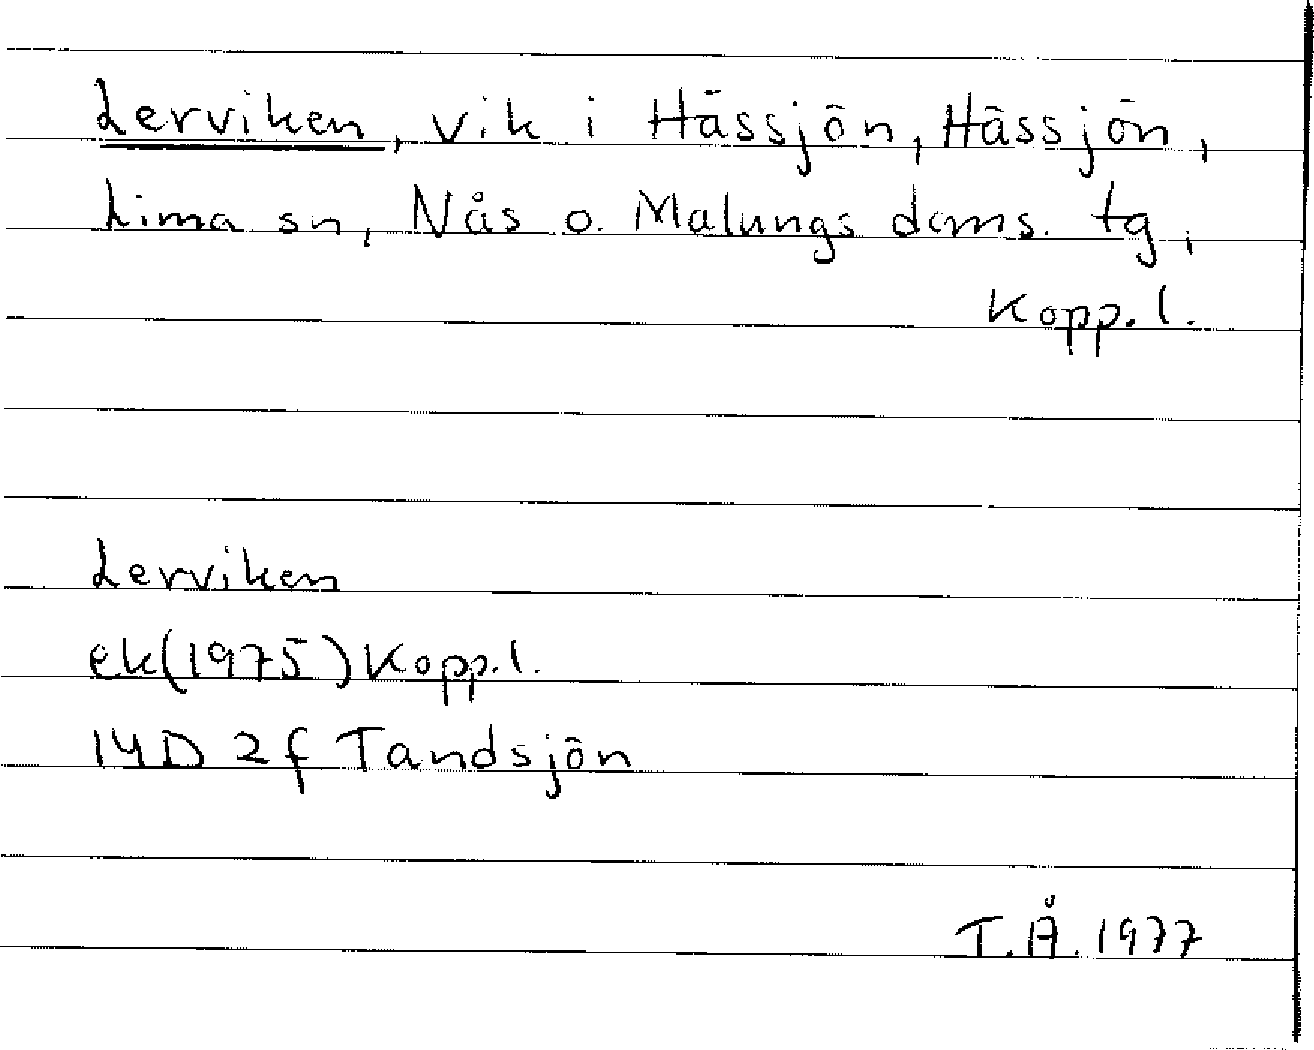 Lerviken, vik i Hässjön, Hässjön,
Lima sn, Nås o. Malungs doms. tg,
Kopp. l.
Lerviken
ek(1975) Kopp.l.
14D 2f Tandsjön
T.Å. 1977